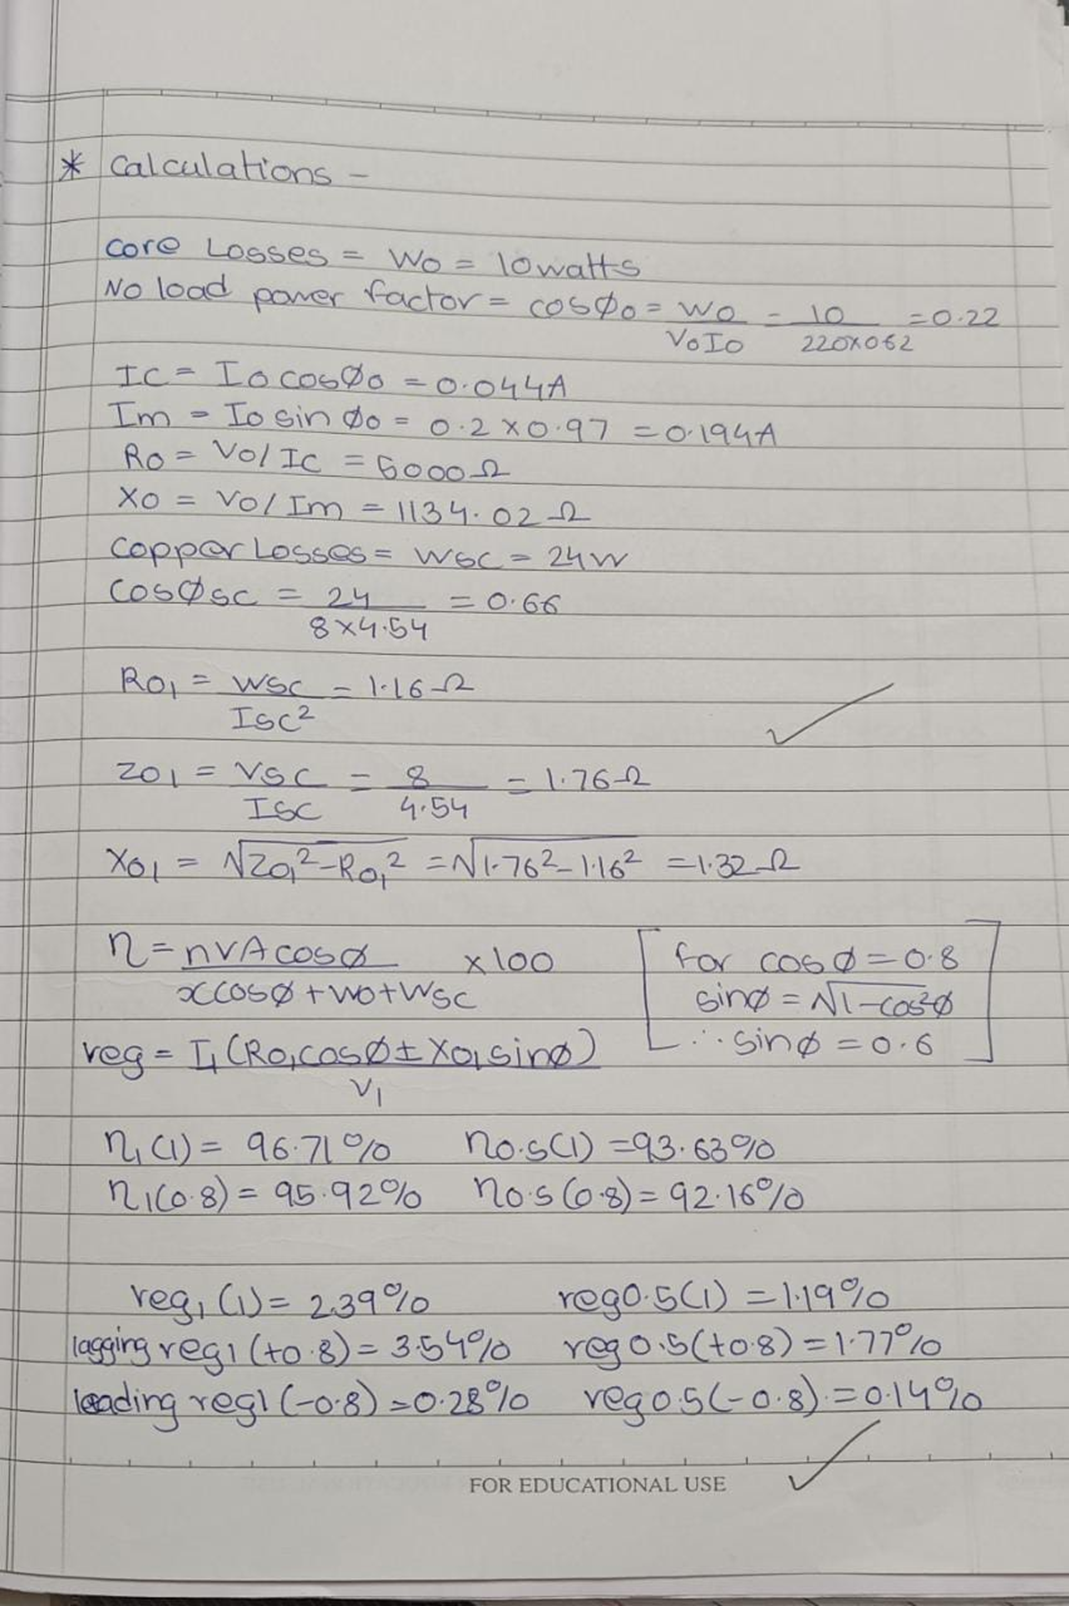 * Calculations -
Core Losses = Wo = 10watts
No load power factor = cosφo = Wo/VoIo = 10/220x0.62 = 0.22
Ic = Io cosφo = 0.044A
Im = Io sin φo = 0.2 x 0.97 = 0.194A
Ro = Vo/Ic = 5000Ω
Xo = Vo/Im = 1134.02 Ω
Copper Losses = Wsc = 24W
Cosφsc = 24/8x4.54 = 0.66
R01 = Wsc/Isc² = 1.16Ω
Z01 = Vsc/Isc = 8/4.54 = 1.76Ω
X01 = √Z01²-R01² = √1.76²-1.16² = 1.32Ω
η = nVAcosφ/xcosφ+Wo+Wsc x100
[for cosφ = 0.8
sinφ = √1-cos²φ
∴ sinφ = 0.6]
reg = I1(R01cosφ ± X01sinφ)/V1
η1(1) = 96.71% η0.5(1) = 93.63%
η1(0.8) = 95.92% η0.5(0.8) = 92.16%
reg1(1) = 2.39% reg0.5(1) = 1.19%
lagging reg1(+0.8) = 3.54% reg0.5(+0.8) = 1.77%
leading reg1(-0.8) = 0.28% reg0.5(-0.8) = 0.14%
FOR EDUCATIONAL USE